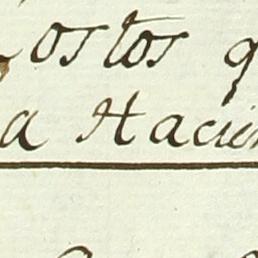 Costos q
la Hacien